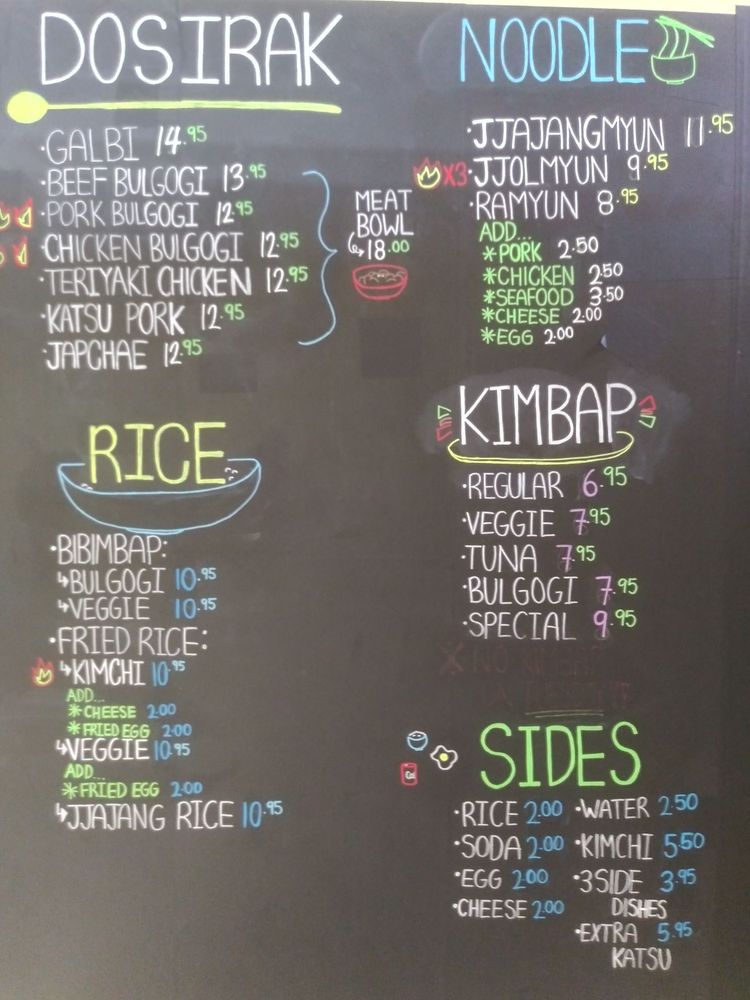 DOSIRAK
·GALBI 14.95
·BEEF BULGOGI 13.95
·PORK BULGOGI 12.95
·CHICKEN BULGOGI 12.95
·TERIYAKI CHICKEN 12.95
·KATSU PORK 12.95
·JAPCHAE 12.95
MEAT
BOWL
↳18.00
RICE
·BIBIMBAP:
↳BULGOGI 10.95
↳VEGGIE 10.95
·FRIED RICE:
↳KIMCHI 10.95
ADD...
*CHEESE 2.00
*FRIED EGG 2.00
↳VEGGIE 10.95
ADD...
*FRIED EGG 2.00
↳JJAJANG RICE 10.95
NOODLE
·JJAJANGMYUN 11.95
X3·JJOLMYUN 9.95
·RAMYUN 8.95
ADD...
*PORK 2.50
*CHICKEN 2.50
*SEAFOOD 3.50
*CHEESE 2.00
*EGG 2.00
KIMBAP
·REGULAR 6.95
·VEGGIE 7.95
·TUNA 7.95
·BULGOGI 7.95
·SPECIAL 9.95
SIDES
·RICE 2.00
·SODA 2.00
·EGG 2.00
·CHEESE 2.00
·WATER 2.50
·KIMCHI 5.50
·3 SIDE 3.95
DISHES
·EXTRA 5.95
KATSU